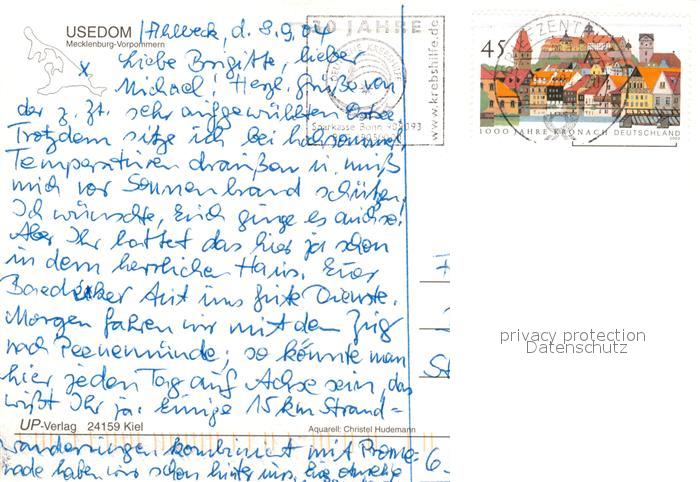 USEDOM
Mecklenburg-Vorpommern
Ahlbeck, d. 8.9.04
Liebe Brigitte, lieber
Michael! Herzl. Grüße von
der z. Zt. sehr aufgewühlten Ostsee
Trotzdem sitze ich bei hochsommerl.
Temperaturen draußen u. muß
mich vor Sonnenbrand schützen.
Ich wünschte, Euch ginge es auch so!
Aber Ihr hattet das hier ja schon
in dem herrlichen Haus. Euer
Baedeker tut uns gute Dienste.
Morgen fahren wir mit dem Zug
nach Peenemünde; so könnte man
hier jeden Tag auf Achse sein, das
wißt Ihr ja. Einige 15 km Strand=
UP-Verlag 24159 Kiel
Aquarell: Christel Hudemann
wanderungen kombiniert mit Prome=
nade haben wir schon hinter uns.
JAHRE
www.krebshilfe.de
Sparkasse Bonn
45
1000 JAHRE KRONACH DEUTSCHLAND
2003
privacy protection
Datenschutz